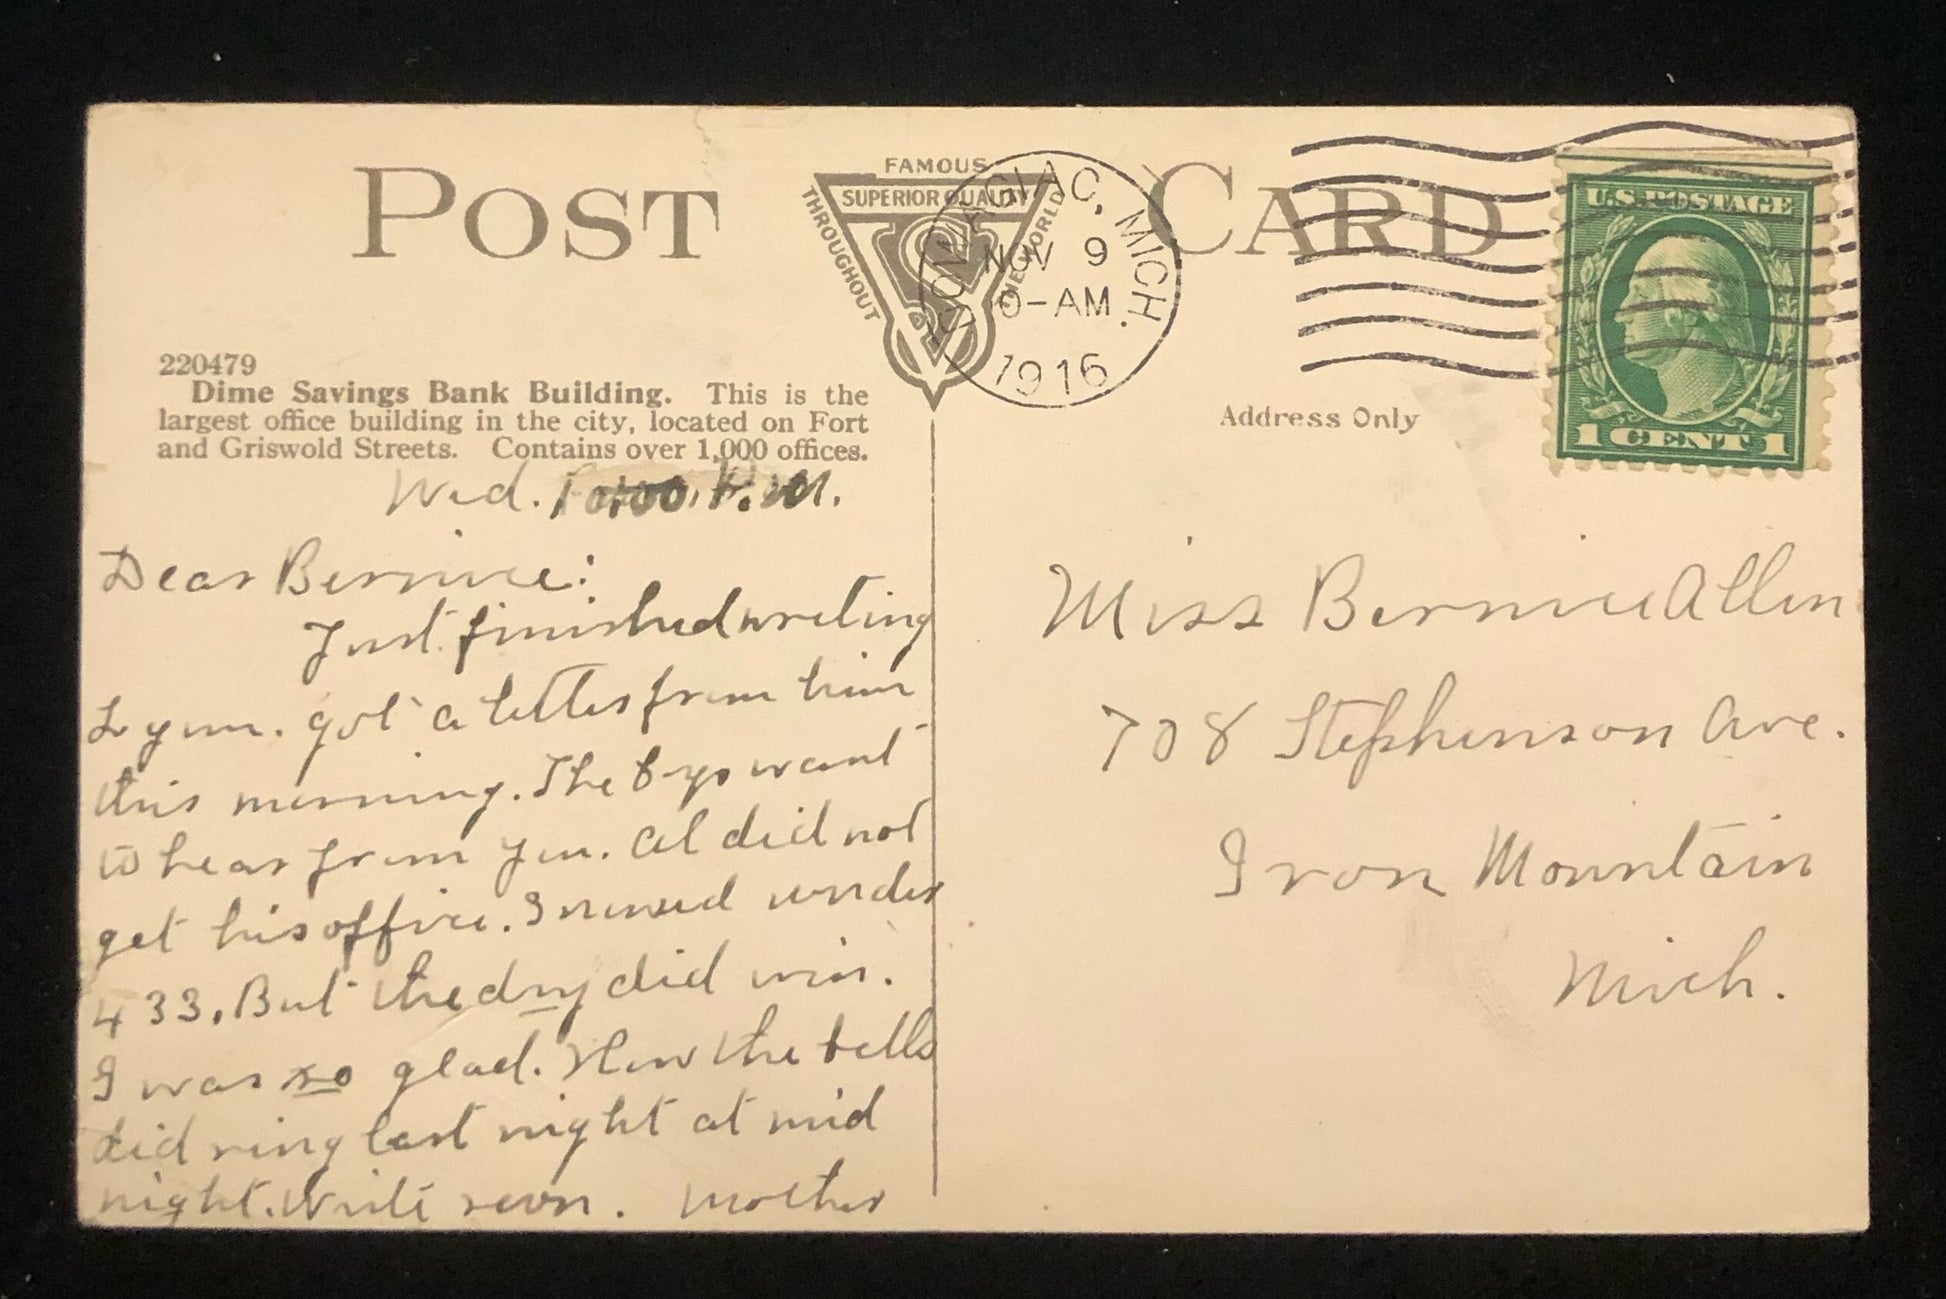 POST CARD
FAMOUS
SUPERIOR QUALITY
THROUGHOUT
THE WORLD
DOWAGIAC, MICH.
NOV 9
-AM
1916
U.S. POSTAGE
1 CENT 1
220479
Dime Savings Bank Building. This is the
largest office building in the city, located on Fort
and Griswold Streets. Contains over 1,000 offices.
Address Only
Wed. 10:00, P.M.
Dear Bernice:
Just finished writing
Lynn. got a letter from him
this morning. The boys want
to hear from you. Al did not
get his office. I nursed under
433. But the dry did win.
I was so glad. How the bells
did ring last night at mid
night. Write soon. Mother
Miss Bernice Allen
708 Stephenson Ave.
Iron Mountain
Mich.